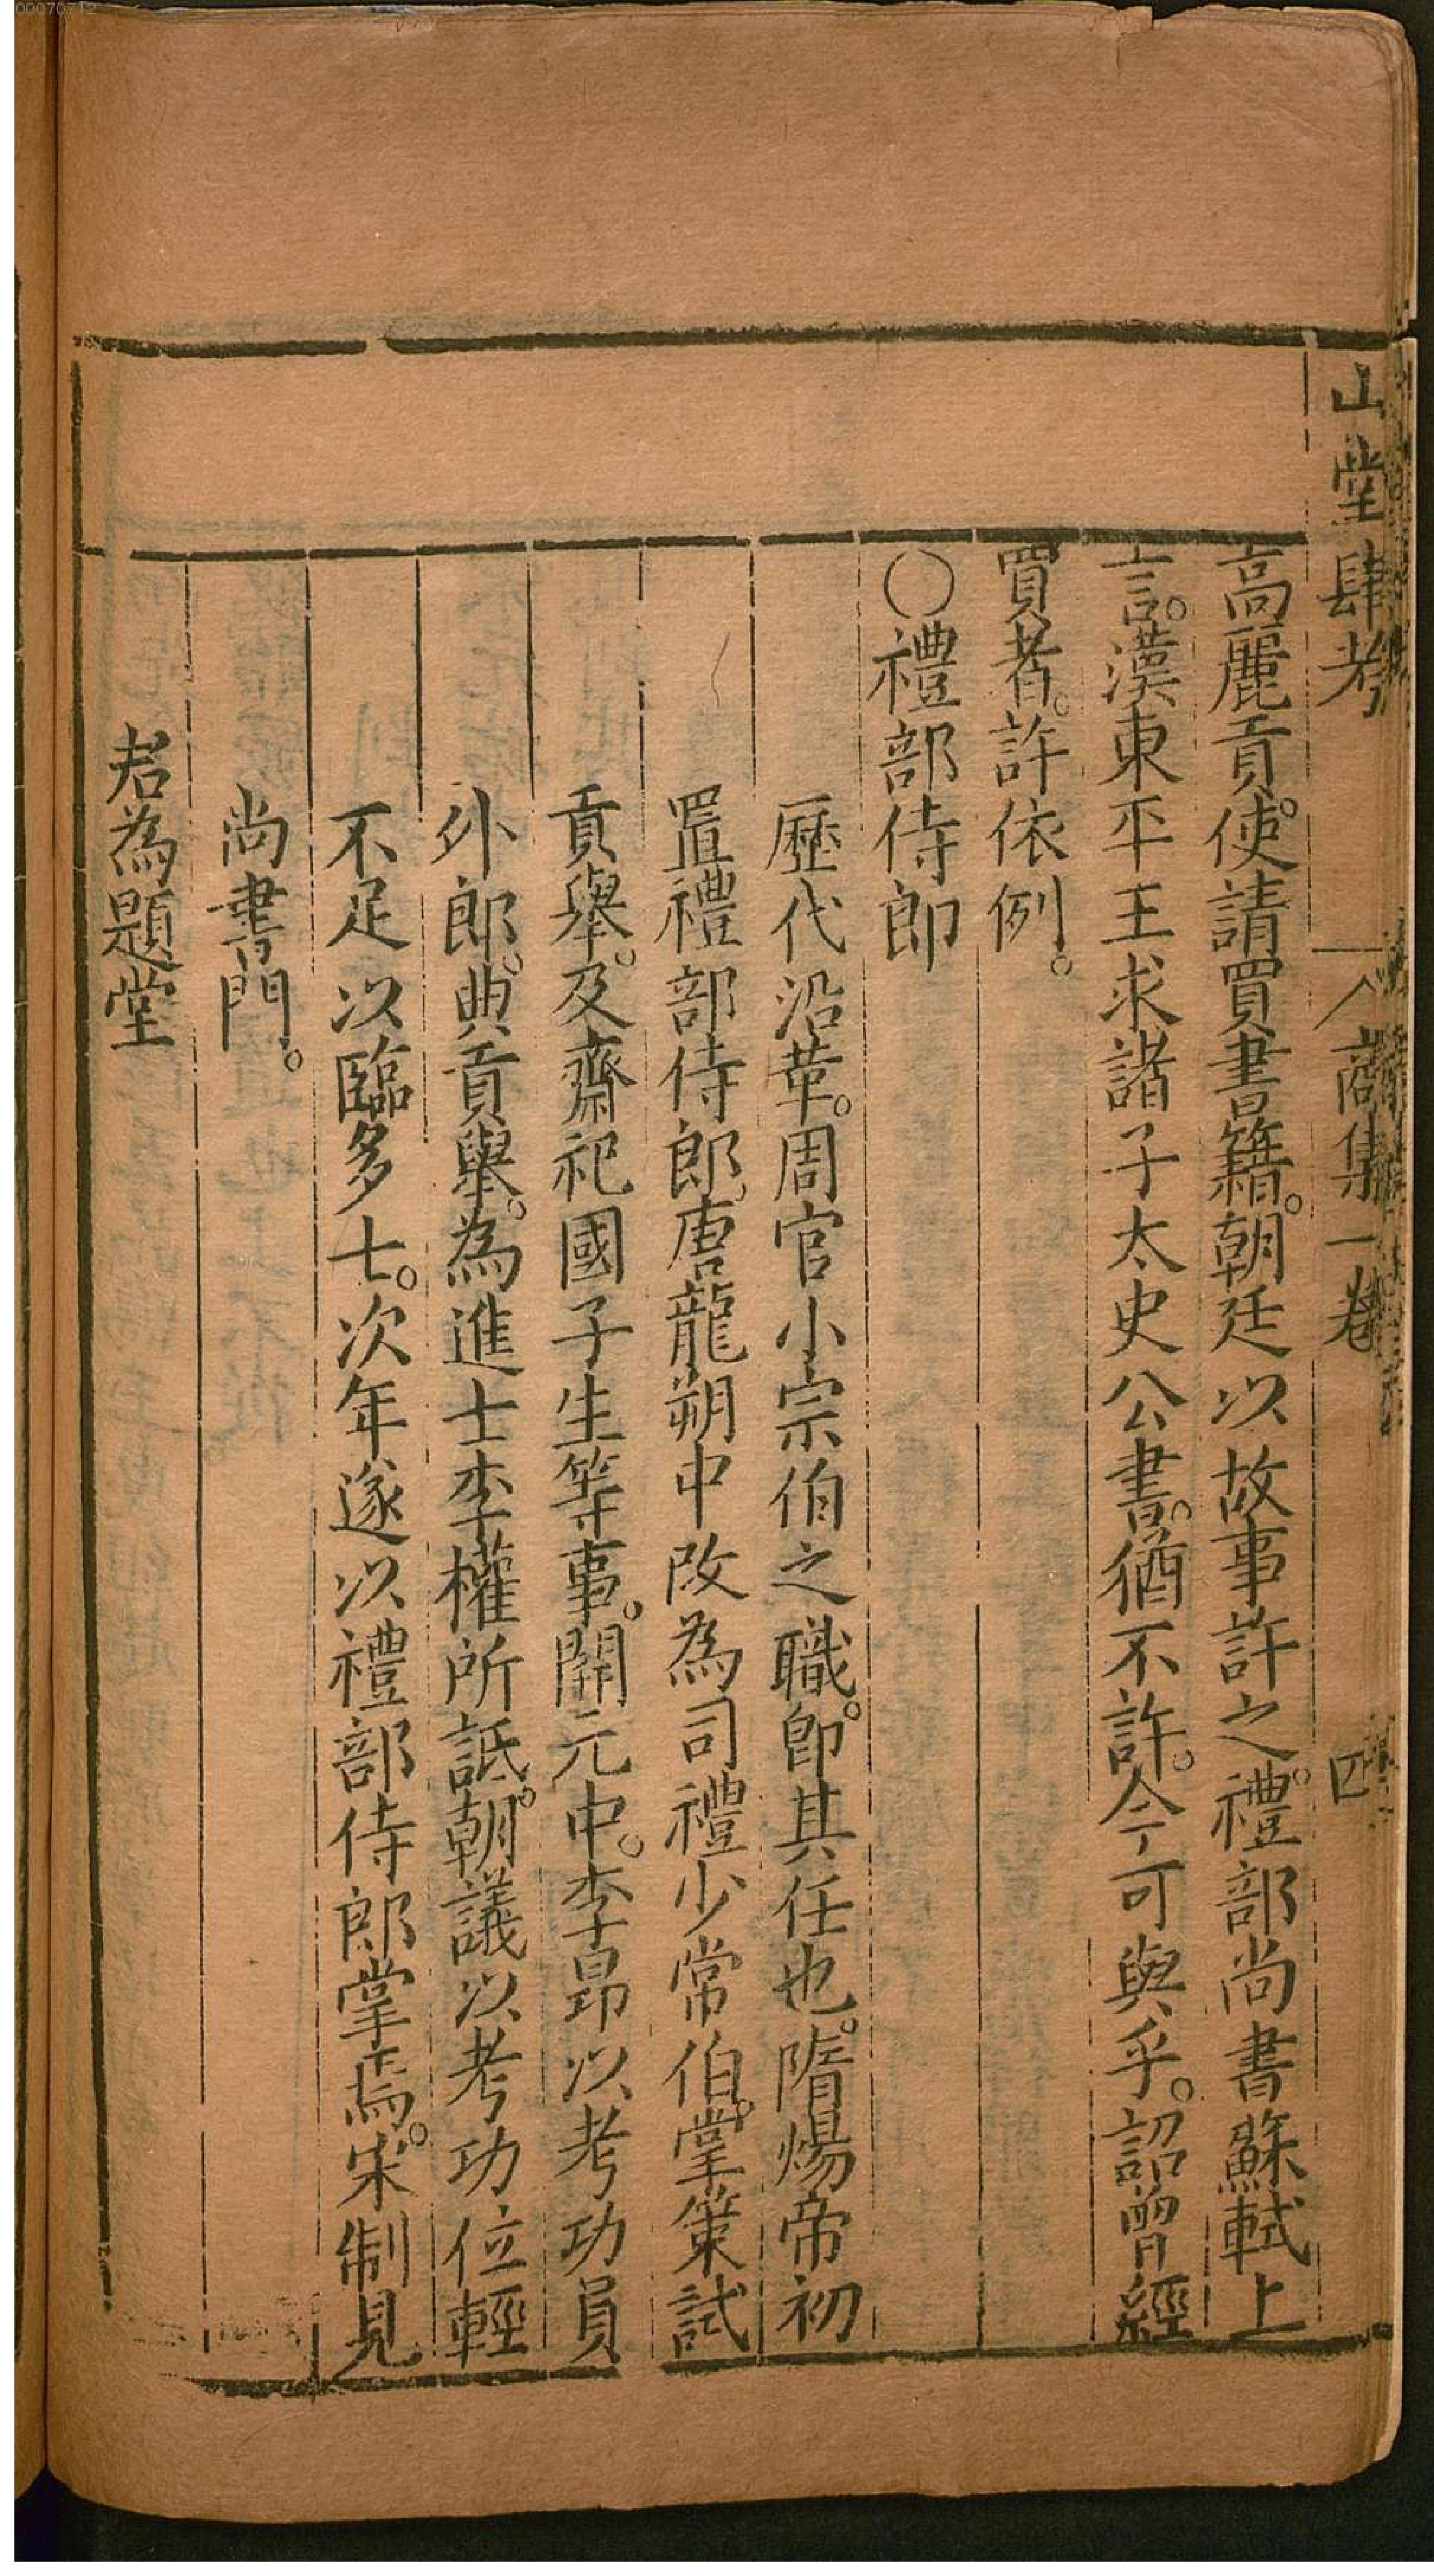 00070712
山堂肆考 商集一卷 四
高麗貢使。請買書籍。朝廷以故事許之。禮部尚書蘇軾上
言。漢東平王求諸子太史公書。猶不許。今可與乎。詔曾經
買者。許依例。
○禮部侍郎
歷代沿革。周官小宗伯之職。卽其任也。隋煬帝初
置禮部侍郎。唐龍朔中改為司禮少常伯。掌策試
貢舉。及齋祀國子生等事。開元中。李昂以考功員
外郎。典貢舉。為進士李權所詆。朝議以考功位輕
不足以臨多士。次年遂以禮部侍郎掌焉。宋制見
尚書門。
君為題堂